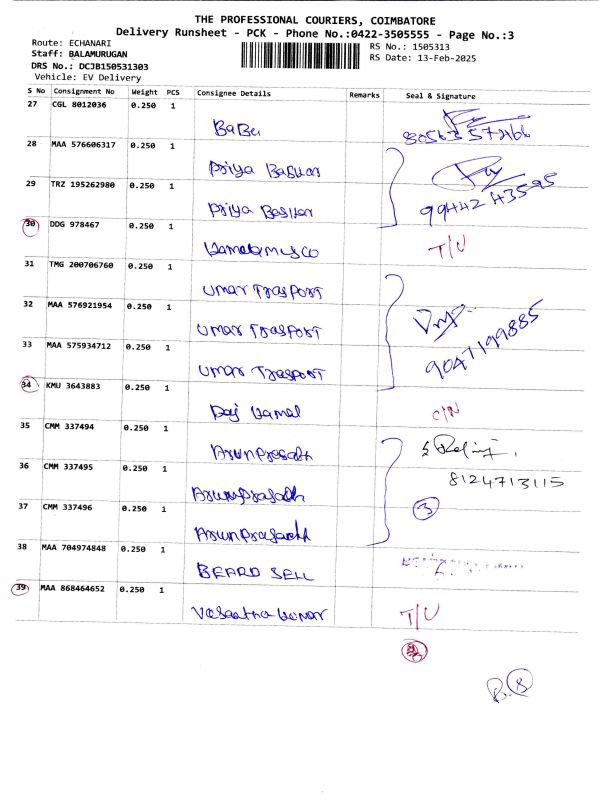 THE PROFESSIONAL COURIERS, COIMBATORE
Delivery Runsheet - PCK - Phone No.:0422-3505555 - Page No.:3
Route: ECHANARI
RS No.: 1505313
Staff: BALAMURUGAN
RS Date: 13-Feb-2025
DRS No.: DCJB150531303
Vehicle: EV Delivery
S No Consignment No Weight PCS Consignee Details Remarks Seal & Signature
27 CGL 8012036 0.250 1
BaBu 80563 57266
28 MAA 576606317 0.250 1
Priya Baskar
29 TRZ 195262980 0.250 1
Priya Basker 99442 43595
30 DDG 978467 0.250 1
T/U
31 TMG 200706760 0.250 1
Umar TrasPort
32 MAA 576921954 0.250 1
Umar TrasPort
33 MAA 575934712 0.250 1
Umar TrasPort 9047199885
34 KMU 3643883 0.250 1
Raj Kamal C/N
35 CMM 337494 0.250 1
ArunPrasadh
36 CMM 337495 0.250 1
ArunPrasadh 8124713115
37 CMM 337496 0.250 1
ArunPrasadh 3
38 MAA 704974848 0.250 1
BEARD SELL
39 MAA 868464652 0.250 1
Vasantha Kumar T/U
B. 8